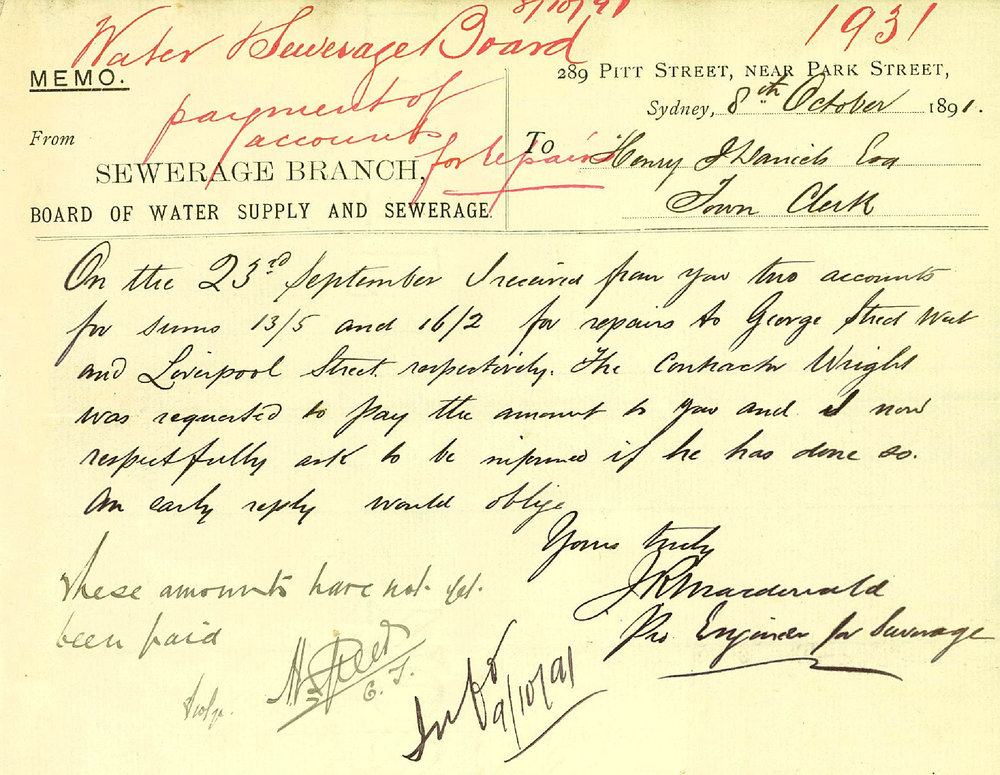 8/10/91
1931
Water & Sewerage Board
payment of
accounts
for repairs
MEMO.
289 PITT STREET, NEAR PARK STREET,
Sydney, 8th October 1891.
From
SEWERAGE BRANCH,
BOARD OF WATER SUPPLY AND SEWERAGE.
To Henry J Daniels Esq
Town Clerk
On the 23rd September I received from you two accounts
for sums 13/5 and 16/2 for repairs to George Street West
and Liverpool Street respectively. The Contractor Wright
was requested to pay the amount to you and I now
respectfully ask to be informed if he has done so.
An early reply would oblige
Yours truly
J R Macdonald
Pro Engineer for Sewerage
These amounts have not yet
been paid
C. T.
Infd
9/10/91